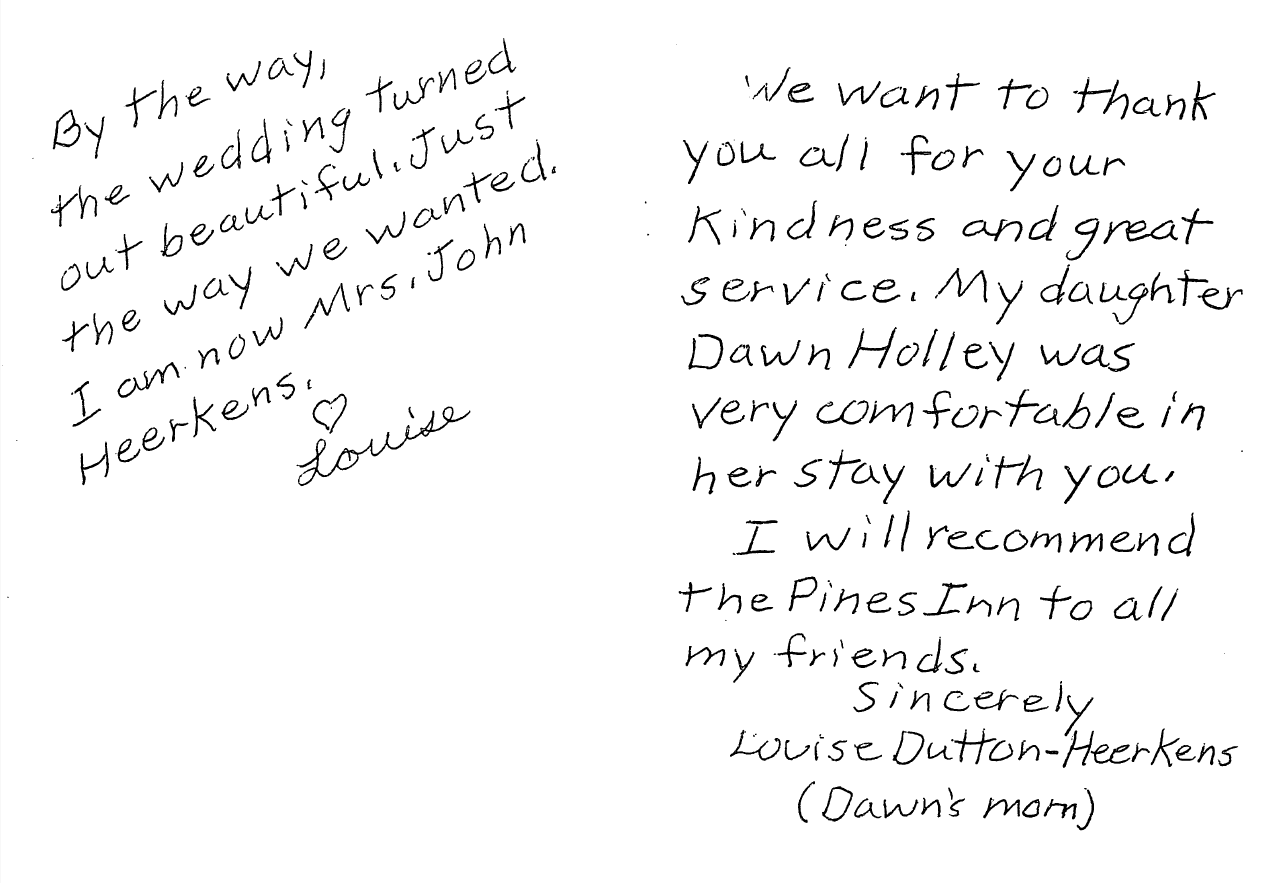 By the way,
the wedding turned
out beautiful. Just
the way we wanted.
I am now Mrs. John
Heerkens.
♡
Louise
We want to thank
you all for your
Kindness and great
service. My daughter
Dawn Holley was
very comfortable in
her stay with you.
I will recommend
the Pines Inn to all
my friends.
Sincerely
Louise Dutton-Heerkens
(Dawn's mom)